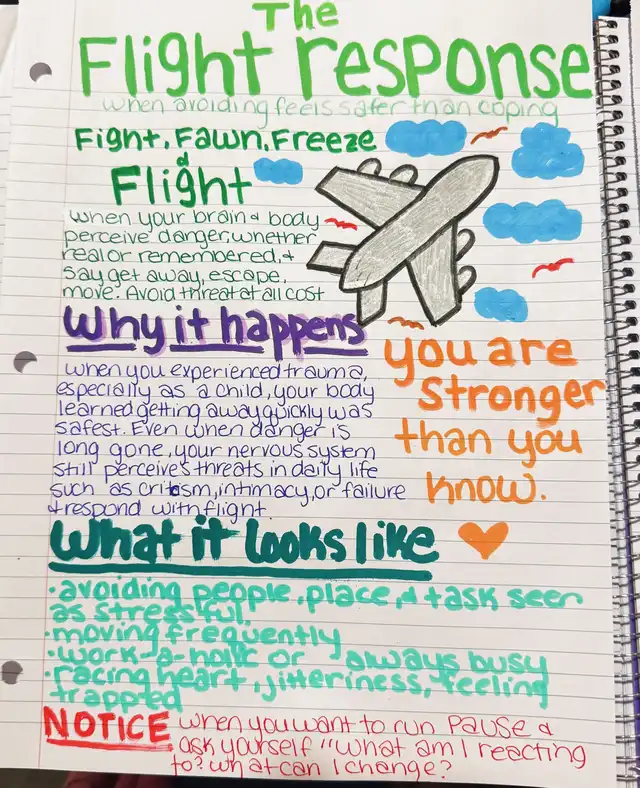 The
Flight response
when avoiding feels safer than coping
Fight, Fawn, Freeze
&
Flight
when your brain & body
perceive danger, whether
real or remembered, &
say get away, escape,
move. Avoid threat at all cost
Why it happens
when you experienced trauma,
especially as a child, your body
learned getting away quickly was
safest. Even when danger is
long gone, your nervous system
still perceives threats in daily life
such as critism, intimacy, or failure
& respond with flight.
you are
stronger
than you
know.
What it looks like
• avoiding people, place, & task seen
as stressful.
• moving frequently
• work-a-holic or always busy
• racing heart, jitteriness, feeling
trapped
NOTICE when you want to run PAUSE &
ask yourself "what am I reacting
to? what can I change?